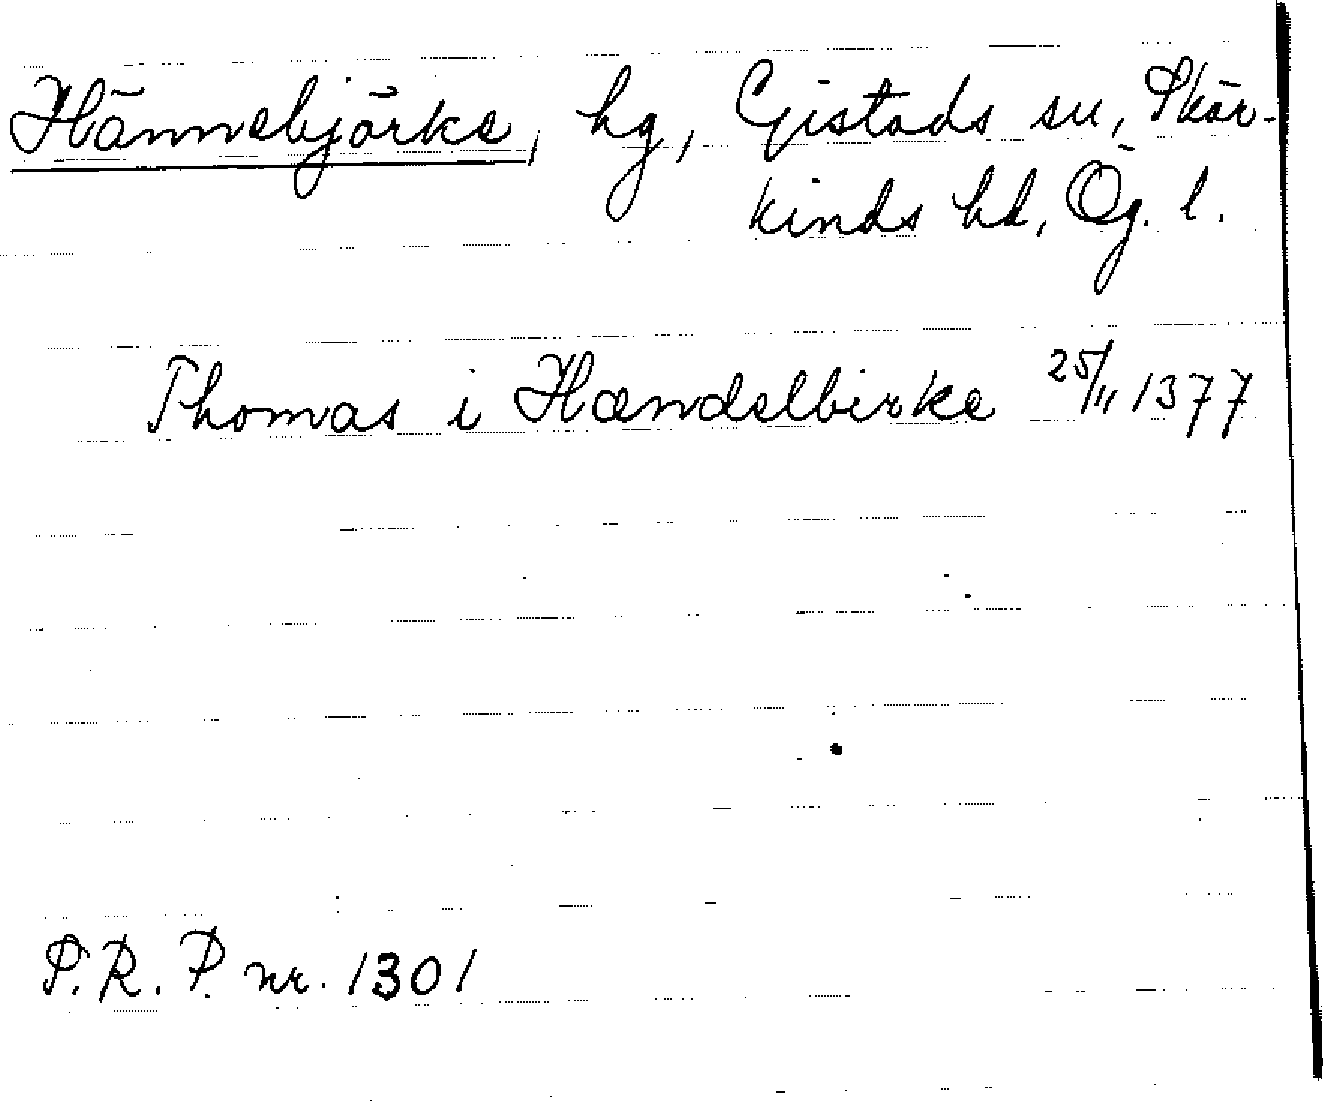 Hännebjörke, hg, Gistads sn, Skär-
kinds hd, Ög. l.
Thomas i Hændelbirke 25/11 1377
P.R.P. nr. 1301